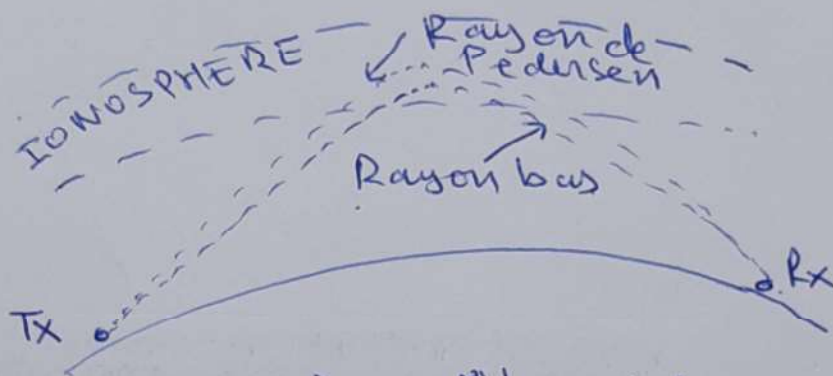 IONOSPHERE
Rayon de
Pedersen
Rayon bas
Tx
Rx